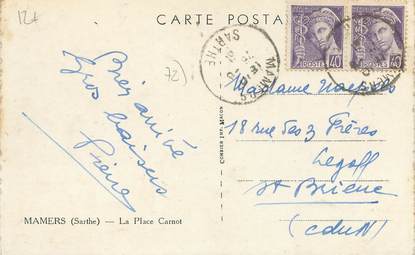 12t
CARTE POSTA
MAMERS
SARTHE
POSTES 40
POSTES 40
72
Bien arrivé
Gros baisers
Pierre
Madame
18 rue des 3 Frères
Legoff
St Brieuc
(CduN)
MAMERS (Sarthe) — La Place Carnot